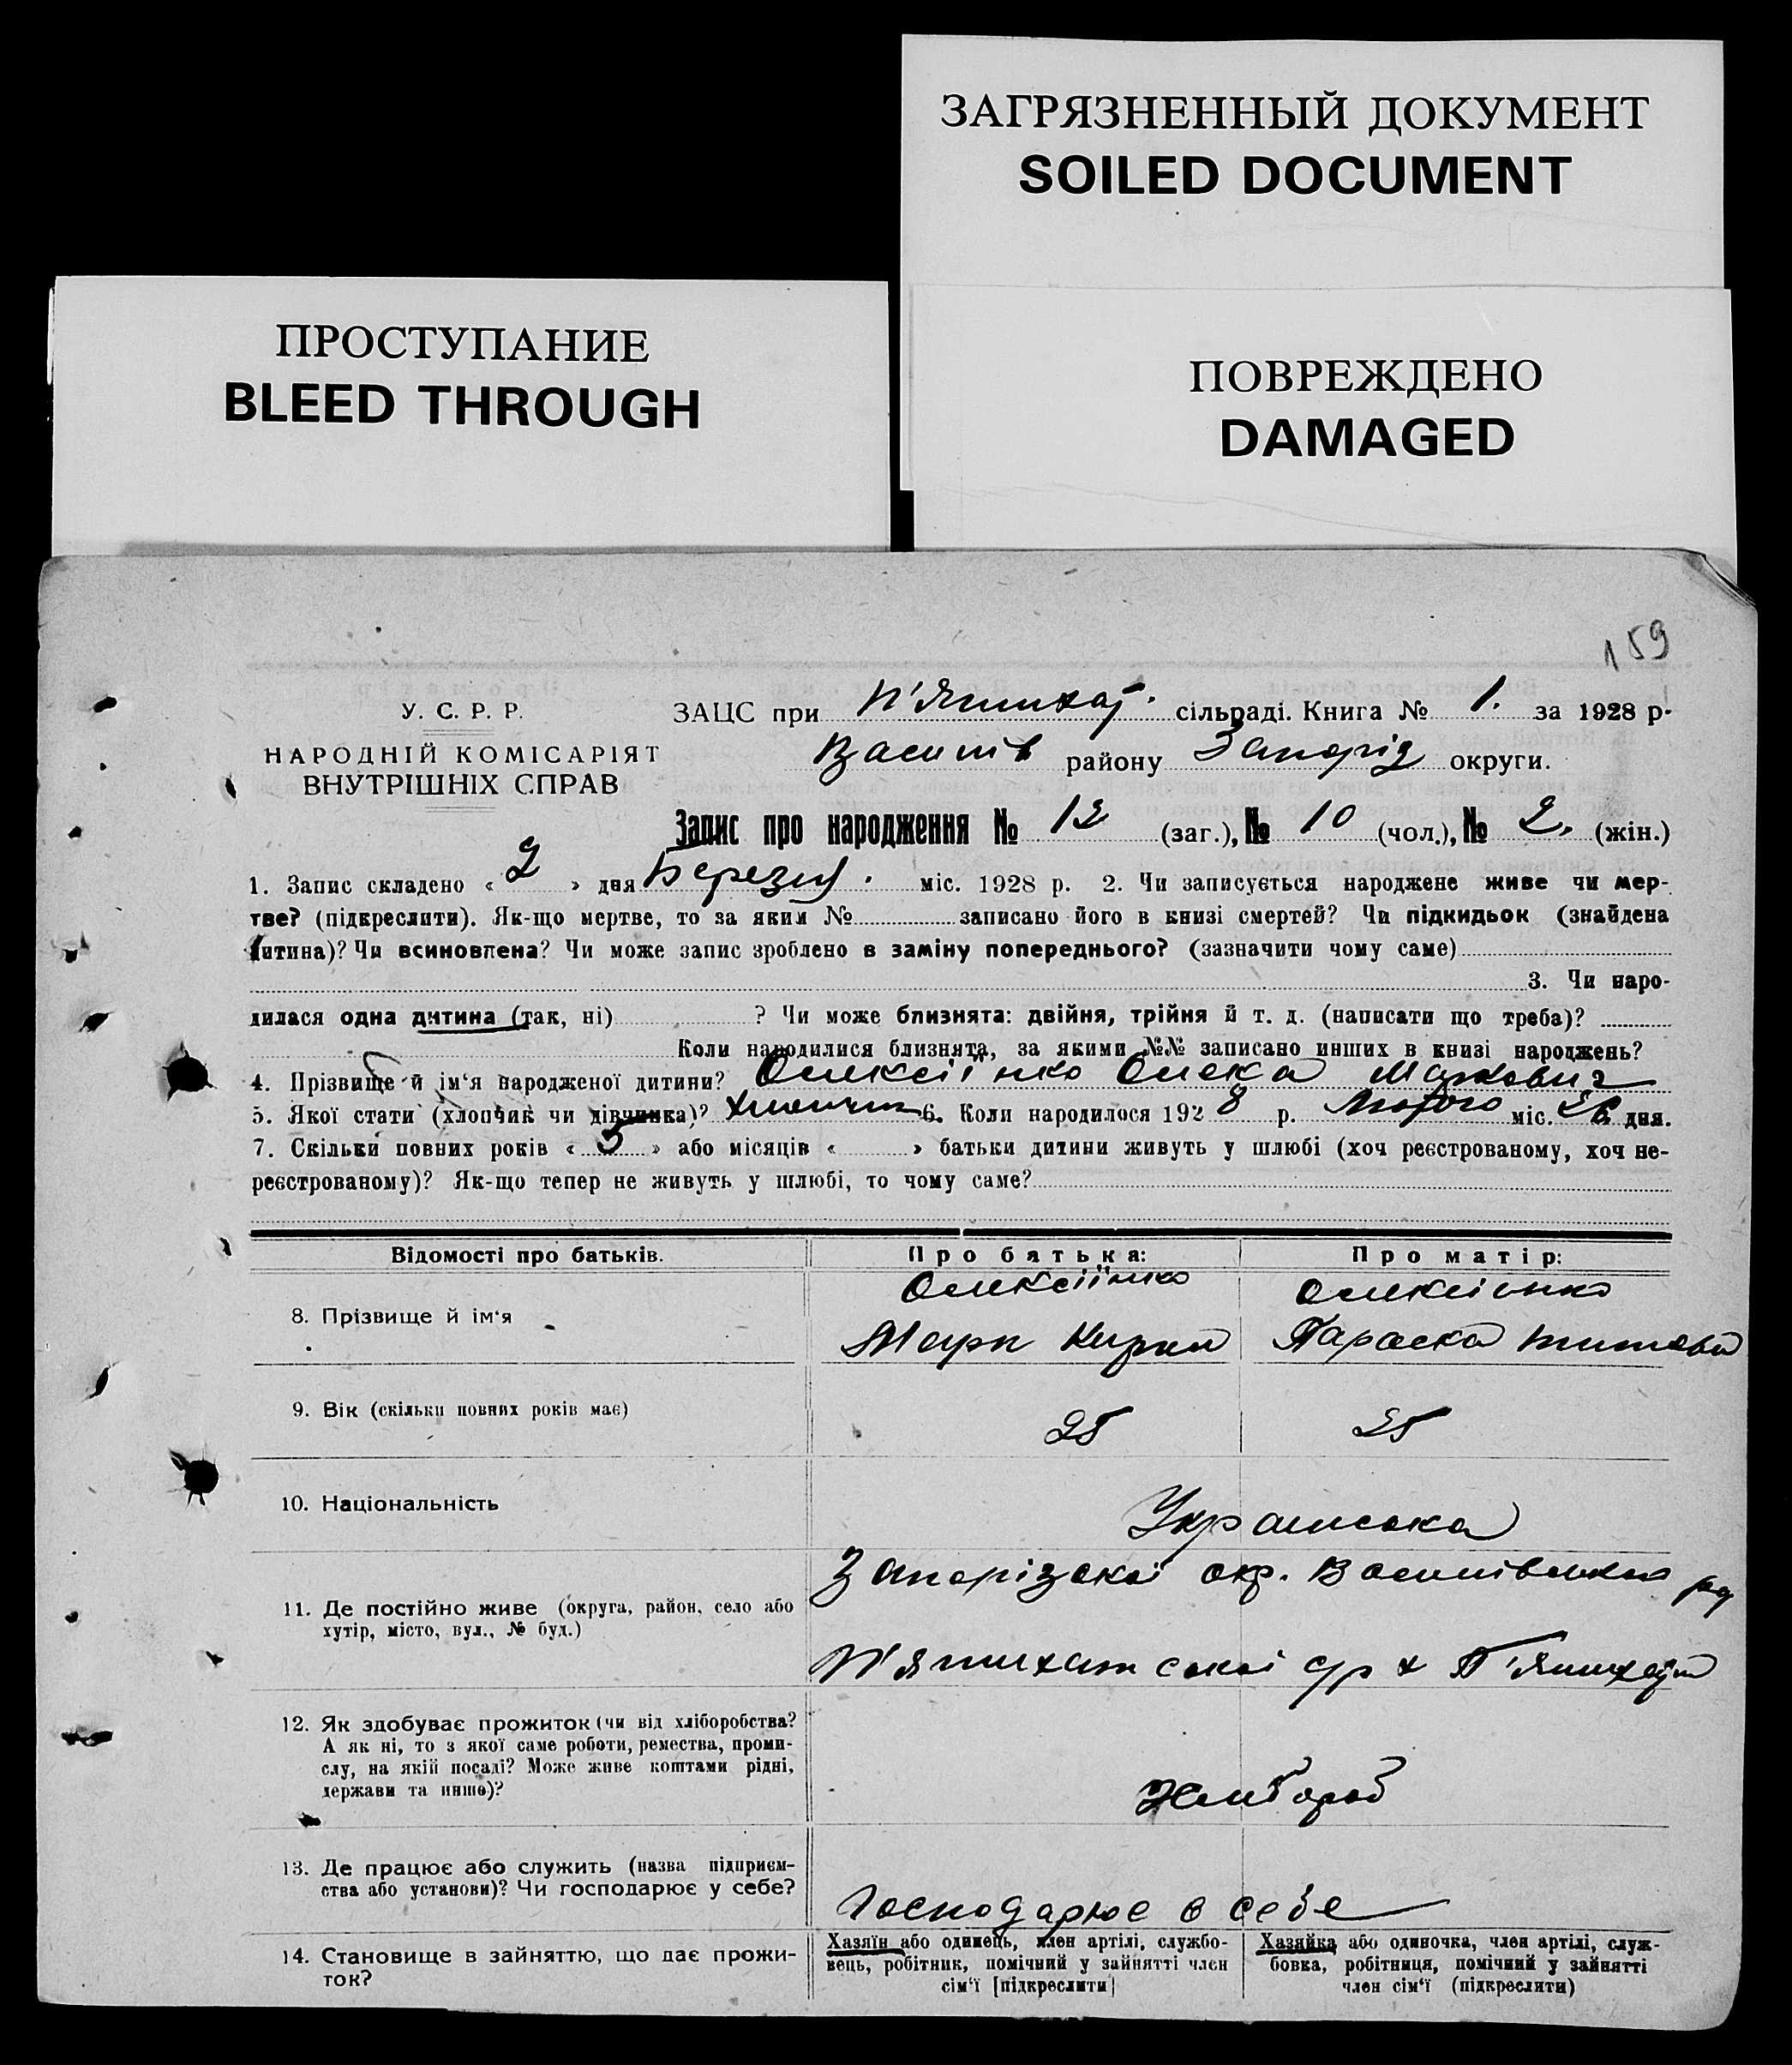 ЗАГРЯЗНЕННЫЙ ДОКУМЕНТ
SOILED DOCUMENT
ПРОСТУПАНИЕ
BLEED THROUGH
ПОВРЕЖДЕНО
DAMAGED
159
У. С. Р. Р.
НАРОДНІЙ КОМІСАРІЯТ
ВНУТРІШНІХ СПРАВ
ЗАЦС при П'ятихат. сільраді. Книга № 1. за 1928 р.
Василів району Запоріз округи.
Запис про народження № 12 (заг.), № 10 (чол.), № 2. (жін.)
1. Запис складено « 2 » дня Березня. міс. 1928 р. 2. Чи записується народжене живе чи мер-
тве? (підкреслити). Як-що мертве, то за яким № записано його в книзі смертей? Чи підкидьок (знайдена
дитина)? Чи всиновлена? Чи може запис зроблено в заміну попереднього? (зазначити чому саме)
3. Чи наро-
дилася одна дитина (так, ні) ? Чи може близнята: двійня, трійня й т. д. (написати що треба)?
Коли народилися близнята, за якими №№ записано инших в книзі народжень?
4. Прізвище й ім'я народженої дитини? Олексіїнко Олекса Маркович
5. Якої стати (хлопчик чи дівчинка)? хлопчик 6. Коли народилося 1928 р. Лютого міс. 26 дня.
7. Скільки повних років « 5 » або місяців « » батьки дитини живуть у шлюбі (хоч реєстрованому, хоч не-
реєстрованому)? Як-що тепер не живуть у шлюбі, то чому саме?
Відомості про батьків.
Про батька:
Про матір:
8. Прізвище й ім'я
Олексіїнко
Марк Кирил
Олексіїнко
Параска Титова
9. Вік (скільки повних років має)
25
25
10. Національність
Українська
11. Де постійно живе (округа, район, село або
хутір, місто, вул., № буд.)
Запорізской окр. Василівського ра
П'ятихатської с/р х П'ятихат
12. Як здобуває прожиток (чи від хліборобства?
А як ні, то з якої саме роботи, ремества, проми-
слу, на якій посаді? Може живе коштами рідні,
держави та инше)?
Хлибороб
13. Де працює або служить (назва підприєм-
ства або установи)? Чи господарює у себе?
Господарює в себе
14. Становище в зайняттю, що дає прожи-
ток?
Хазяїн або одинець, член артілі, службо-
вець, робітник, помічний у зайнятті член
сім'ї [підкреслити]
Хазяйка або одиночка, член артілі, служ-
бовка, робітниця, помічний у зайнятті
член сім'ї (підкреслити)